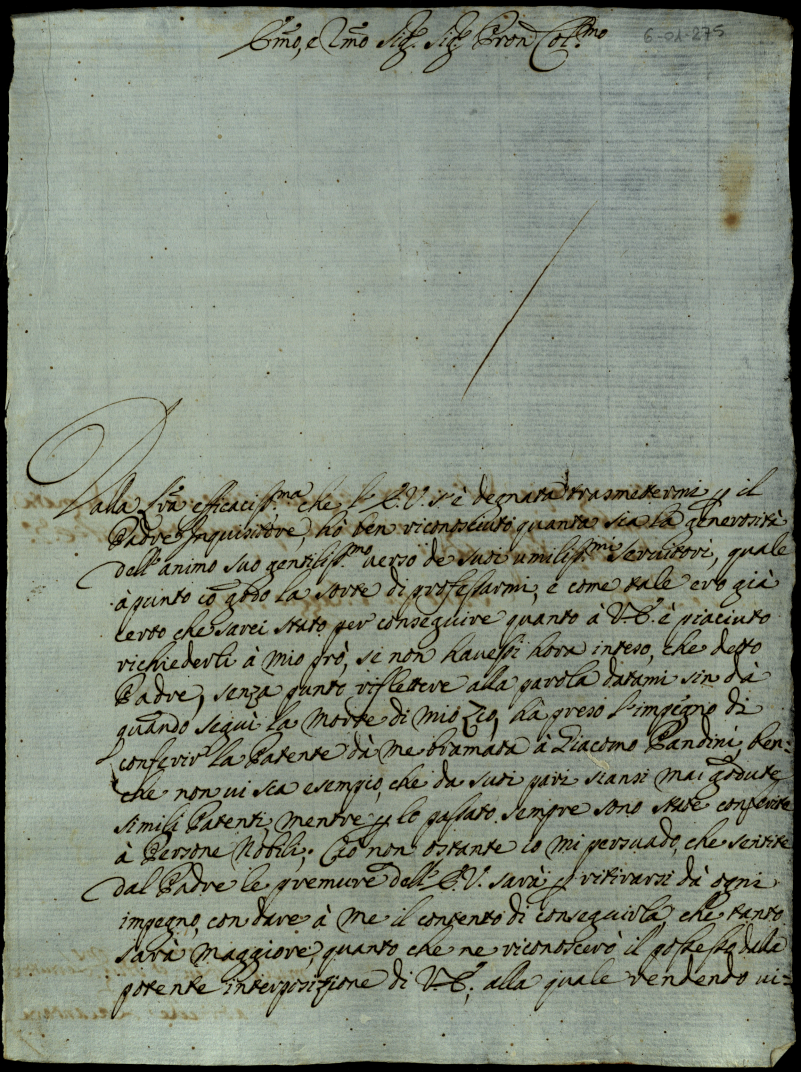 Em̃o, e Rm̃o Sig.r Sig.r Pron Col.mo
6-01-275
Dalla Lrã efficaciss.ma che l'E.V. s'è degnata trasmettermi p il
Padre Inquisitore, hò ben riconosciuto quanta sia la generosità
dell'animo suo gentiliss.mo verso de suoi umiliss.mi Servitori, quale
à punto io godo la sorte di professarmi, e come tale ero già
certo che sarei stato per conseguire quanto à V.E. è piaciuto
richiederli à mio prò, se non havessi hora inteso, che detto
Padre, senza punto riflettere alla parola datami sin dà
quando seguì la morte di mio Zio, hà preso l'impegno di
conferir la Patente dà me bramata à Giacomo Pandini, ben=
che non vi sia esempio, che da suoi pari siansi mai godute
simili Patenti, mentre p lo passato sempre sono state conferite
à Persone Nobili. Ciò non ostante io mi persuado, che sentite
dal Padre le premure dell'E.V. sarà p ritirarsi dà ogni
impegno, con dare à me il contento di conseguirla, che tanto
sarà maggiore, quanto che ne riconoscerò il possesso dalla
potente interposizione di V.E., alla quale rendendo vi=